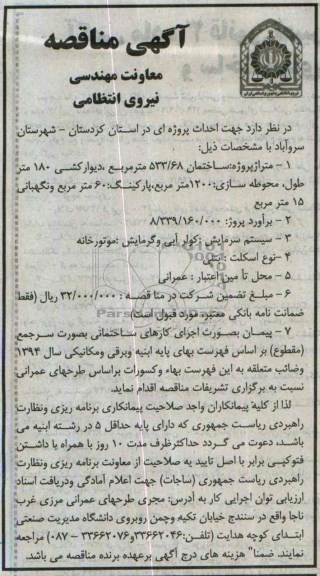 آگهی مناقصه
معاونت مهندسی
نیروی انتظامی
در نظر دارد جهت احداث پروژه ای در استان کردستان - شهرستان
سروآباد با مشخصات ذیل:
۱ - متراژپروژه:ساختمان ۵۳۳/۶۸ مترمربع ،دیوارکشی ۱۸۰ متر
طول، محوطه سازی:۱۲۰۰متر مربع،پارکینگ:۶۰ متر مربع ونگهبانی
۱۵ متر مربع
۲ - برآورد پروژ: ۸/۳۳۹/۱۶۰/۰۰۰
۳ - سیستم سرمایش :کولر آبی وگرمایش :موتورخانه
۴ -نوع اسکلت : بتنی
۵ - محل تأ مین اعتبار : عمرانی
۶ - مبلغ تضمین شرکت در منا قصه : ۳۲/۰۰۰/۰۰۰ ریال (فقط
ضمانت نامه بانکی معتبر، مورد قبول است)
۷ - پیمان بصورت اجرای کارهای ساختمانی بصورت سرجمع
(مقطوع) بر اساس فهرست بهای پایه ابنیه وبرقی ومکانیکی سال ۱۳۹۴
وضائب متعلقه به این فهرست بهاء وکسورات براساس طرحهای عمرانی
نسبت به برگزاری تشریفات مناقصه اقدام نماید.
لذا از کلیه پیمانکاران واجد صلاحیت پیمانکاری برنامه ریزی ونظارت
راهبردی ریاست جمهوری که دارای پایه حداقل ۵ در رشته ابنیه می
باشد، دعوت می گردد حداکثرظرف مدت ۱۰ روز با همراه با داشتن
فتوکپی برابر با اصل تایید یه صلاحیت از معاونت برنامه ریزی ونظارت
راهبردی ریاست جمهوری (ساجات) جهت اعلام آمادگی ودریافت اسناد
ارزیابی توان اجرایی کار به آدرس: مجری طرحهای عمرانی مرزی غرب
ناجا واقع در سنندج خیابان تکیه وچمن روبروی دانشگاه مدیریت صنعتی
ابتدای کوچه هدایت (تلفن:۳۳۶۶۲۰۴۶و۳۳۶۶۲۰۷۶ - ۰۸۷) مراجعه
نمایند. ضمنا" هزینه های درج آگهی برعهده برنده مناقصه می باشد.